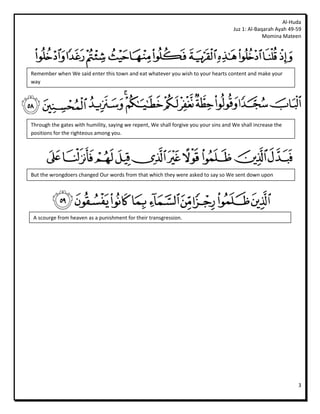 Al-Huda
Juz 1: Al-Baqarah Ayah 49-59
Momina Mateen
وَإِذْ قُلْنَا ٱدْخُلُوا۟ هَٰذِهِ ٱلْقَرْيَةَ فَكُلُوا۟ مِنْهَا حَيْثُ شِئْتُمْ رَغَدًا وَٱدْخُلُوا۟
Remember when We said enter this town and eat whatever you wish to your hearts content and make your
way
ٱلْبَابَ سُجَّدًا وَقُولُوا۟ حِطَّةٌ نَّغْفِرْ لَكُمْ خَطَٰيَٰكُمْ ۚ وَسَنَزِيدُ ٱلْمُحْسِنِينَ ٥٨
Through the gates with humility, saying we repent, We shall forgive you your sins and We shall increase the
positions for the righteous among you.
فَبَدَّلَ ٱلَّذِينَ ظَلَمُوا۟ قَوْلًا غَيْرَ ٱلَّذِى قِيلَ لَهُمْ فَأَنزَلْنَا عَلَى
But the wrongdoers changed Our words from that which they were asked to say so We sent down upon
ٱلَّذِينَ ظَلَمُوا۟ رِجْزًا مِّنَ ٱلسَّمَآءِ بِمَا كَانُوا۟ يَفْسُقُونَ ٥٩
A scourge from heaven as a punishment for their transgression.
3